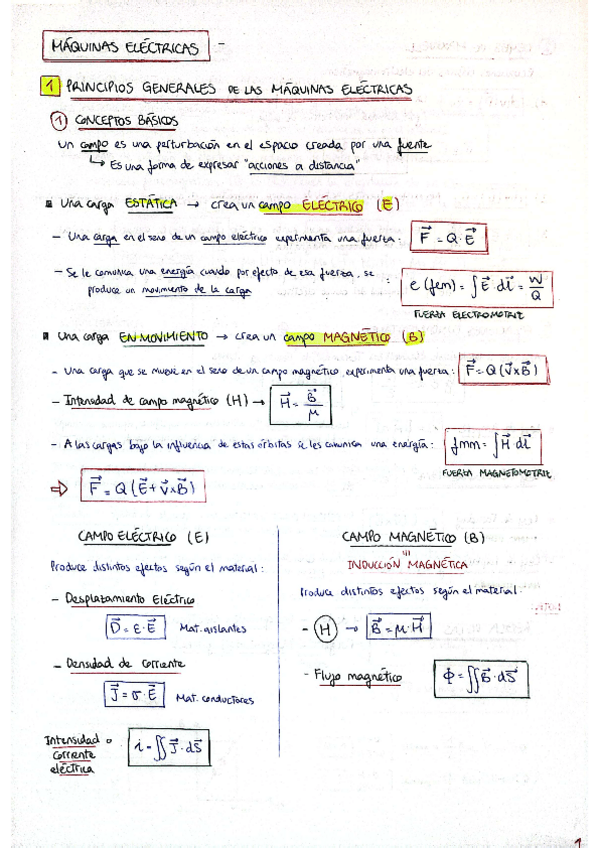 MÁQUINAS ELÉCTRICAS -
1 PRINCIPIOS GENERALES DE LAS MÁQUINAS ELÉCTRICAS
1 CONCEPTOS BÁSICOS
Un campo es una perturbación en el espacio creada por una fuente
↳ Es una forma de expresar "acciones a distancia"
▪ Una carga ESTÁTICA → crea un campo ELÉCTRICO (E)
- Una carga en el seno de un campo eléctrico experimenta una fuerza: F⃗ = Q·E⃗
- Se le comunica una energía cuando por efecto de esa fuerza, se
produce un movimiento de la carga : e (fem) = ∫ E⃗ dl⃗ = W/Q
FUERZA ELECTROMOTRIZ
▪ Una carga EN MOVIMIENTO → crea un campo MAGNÉTICO (B)
- Una carga que se mueve en el seno de un campo magnético, experimenta una fuerza: F⃗ = Q (v⃗ x B⃗)
- Intensidad de campo magnético (H) → H⃗ = B⃗/μ
- A las cargas bajo la influencia de estas órbitas se les comunica una energía: fmm = ∫ H⃗ dl⃗
FUERZA MAGNETOMOTRIZ
⇒ F⃗ = Q (E⃗ + v⃗ x B⃗)
CAMPO ELÉCTRICO (E)
Produce distintos efectos según el material:
- Desplazamiento Eléctrico
D⃗ = ε·E⃗ Mat. aislantes
- Densidad de corriente
J⃗ = σ·E⃗ Mat. conductores
Intensidad
corriente
eléctrica
i = ∬ J⃗·dS⃗
CAMPO MAGNÉTICO (B)
≡
INDUCCIÓN MAGNÉTICA
Produce distintos efectos según el material:
- H → B⃗ = μ·H⃗
- Flujo magnético ϕ = ∬ B⃗·dS⃗
1